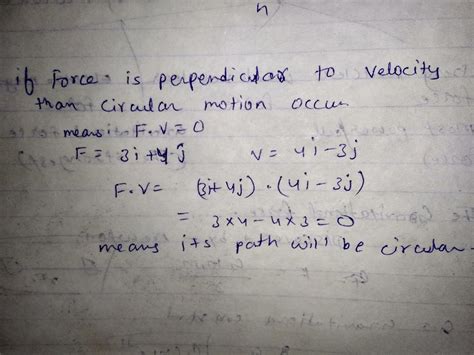 if Force is perpendicular to velocity
than circular motion occur
means F.V = 0
F = 3i + 4j V = 4i - 3j
F.V = (3i + 4j) . (4i - 3j)
= 3×4 - 4×3 = 0
means its path will be circular.